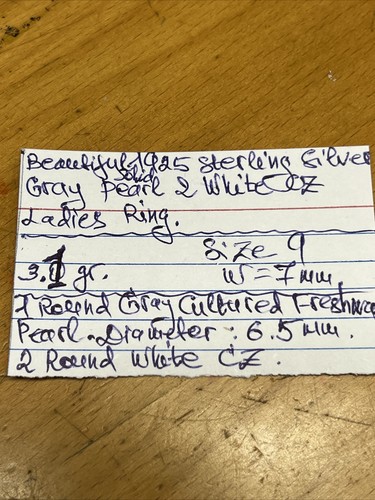 Beautiful 925 Sterling Silver
Solid
Gray Pearl & White CZ
Ladies Ring.
Size 9
3.1 gr. W=7 mm,
1 Round Gray Cultured Freshwa
Pearl. Diameter: 6.5 mm.
2 Round White CZ.